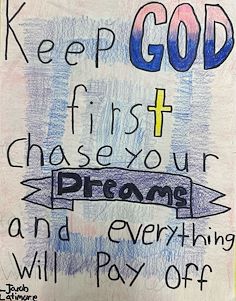 Keep GOD
first
chase your
Dreams
and everything
will Pay off
- Jacob
Latimore